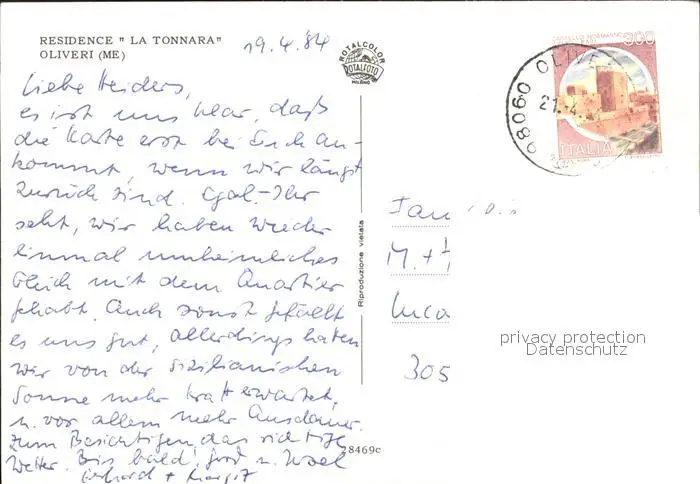 RESIDENCE " LA TONNARA"
OLIVERI (ME)
19.4.84
ROTALCOLOR
ROTALFOTO
MILANO
CASTELLO NORMANNO
300
ITALIA
98060 OLIVE
21.4.
Liebe Heiders,
es ist uns klar, daß
die Karte erst bei Euch an-
kommt, wenn wir längst
zurück sind. Egal. Ihr
seht, wir haben wieder
einmal unheimliches
Glück mit dem Quartier
gehabt. Auch sonst gefällt
es uns gut, allerdings hatten
wir von der sizilianischen
Sonne mehr Kraft erwartet,
u. vor allem mehr Ausdauer.
Zum Besichtigen das richtige
Wetter. Bis bald,
Gerhard + Margit
Riproduzione vietata
28469c
Fam
M. +
Luca
305
privacy protection
Datenschutz